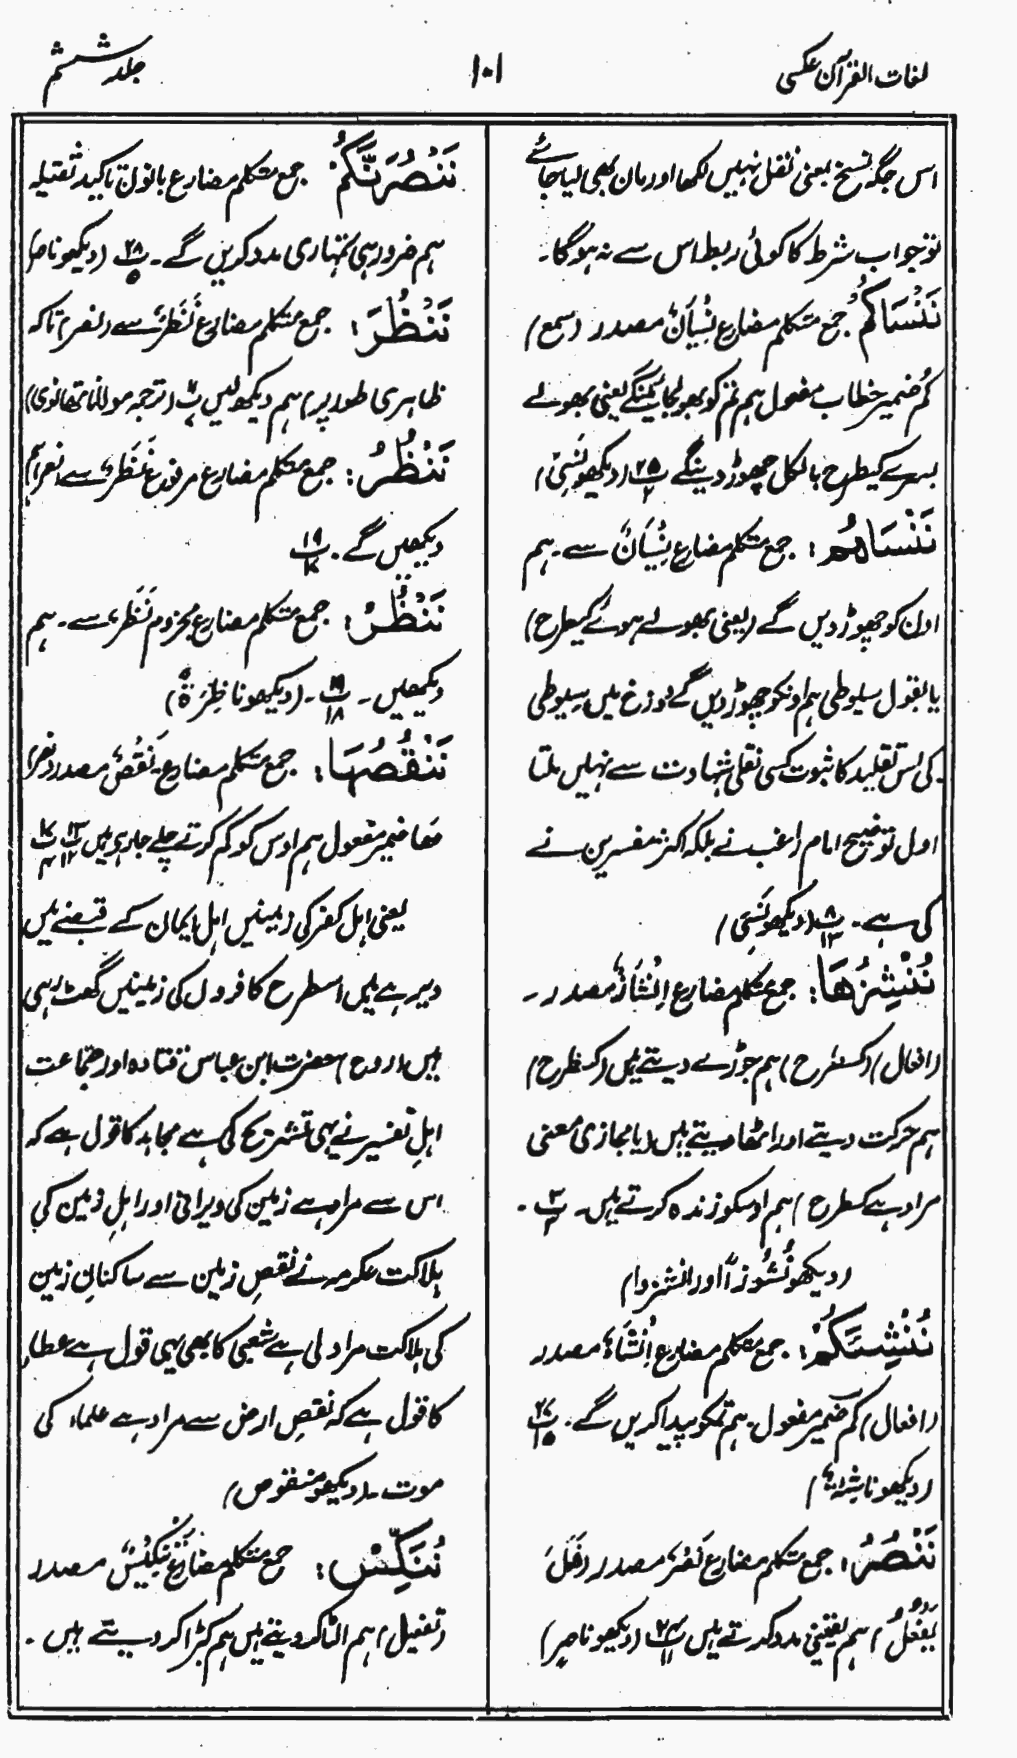 لغات القرآن عکسی
۱۰۱
جلد ششم
اس جگہ نسخ بمعنی نقل نہیں لکھا اور مان بھی لیا جائے
تو جواب شرط کا کوئی ربط اس سے نہ ہوگا۔
نَنْسَاكُمْ جمع متکلم مضارع نِسْیَانٌ مصدر (سمع)
کُم ضمیر خطاب مفعول ہم تم کو بھولجائینگے یعنی بھولے
بسرے کیطرح بالکل چھوڑ دینگے پ۲۵ (دیکھو نَسِیَ)
نَنْسَاهُمْ: جمع متکلم مضارع نِسْیَانٌ سے۔ ہم
اون کو چھوڑ دیں گے (یعنی بھولے ہوئے کیطرح)
یا بقول سیوطی ہم اونکو چھوڑ دیں گے دوزخ میں سیوطی
کی اس تقلید کا ثبوت کسی نقلی شہادت سے نہیں ملتا
اول توضیح امام راغب نے بلکہ اکثر مفسرین نے
کی ہے۔ پ۸ ۱۳ (دیکھو نَسِیَ)
نُنْشِزُهَا: جمع متکلم مضارع اِنْشَازٌ مصدر۔
(افعال) (کسطرح) ہم جوڑے دیتے ہیں (کسطرح)
ہم حرکت دیتے اور اٹھا دیتے ہیں (یا مجازی معنی
مراد ہے کسطرح) ہم اوسکو زندہ کرتے ہیں۔ پ۳۔
(دیکھو نُشُوزاً اور انشزوا)
نُنْشِئَكُمْ: جمع متکلم مضارع اِنْشَاءٌ مصدر
(افعال) کم ضمیر مفعول۔ ہم تمکو پیدا کریں گے۔ پ۲۷ ۱۵
(دیکھو ناشئۃ)
نَنْصُرُ: جمع متکلم مضارع نَصْرٌ مصدر (فَعَلَ
یَفْعُلُ) ہم یقینی مدد کرتے ہیں پ۲۴ ۱۱ (دیکھو ناصر)
نَنْصُرَنَّكُمْ جمع متکلم مضارع بانون تاکید ثقیلہ
ہم ضرور ہی تمہاری مدد کریں گے۔ پ۲۸ ۵ (دیکھو ناصر)
نَنْظُرَ: جمع متکلم مضارع نَظَرٌ سے (نصر) تاکہ
ظاہری طور پر) ہم دیکھ لیں پ (ترجمہ مولانا تھانوی)
نَنْظُرُ: جمع متکلم مضارع مرفوع نَظَرٌ سے (نصر) ہم
دیکھیں گے۔ پ۱۹ ۱۷
نَنْظُرْ: جمع متکلم مضارع مجزوم نَظَرٌ سے۔ ہم
دیکھیں۔ پ۱۹ ۱۸۔ (دیکھو ناظِرَةٌ)
نَنْقُصُهَا: جمع متکلم مضارع نَقْصٌ مصدر (نصر)
ھا ضمیر مفعول ہم اوس کو کم کرتے چلے جا رہی ہیں پ۱۳ ۱۲ پ۱۷ ۴
یعنی اہل کفر کی زمینیں اہل ایمان کے قبضے میں
دیرہے ہیں اسطرح کافروں کی زمینیں گھٹ رہی
ہیں (روح) حضرت ابن عباس قتادہ اور جماعت
اہلِ تفسیر نے یہی تشریح کی ہے مجاہد کا قول ہے کہ
اس سے مراد ہے زمین کی ویرانی اور اہلِ زمین کی
ہلاکت عکرمہ نے نقصِ زمین سے ساکنانِ زمین
کی ہلاکت مراد لی ہے شعبی کا بھی یہی قول ہے عطاء
کا قول ہے کہ نقصِ ارض سے مراد ہے علماء کی
موت۔ (دیکھو منقوص)
نُنَكِّسُ: جمع متکلم مضارع تَنْکِیْسٌ مصدر
(تفعیل) ہم الٹا کر دیتے ہیں ہم کبڑا کر دیتے ہیں۔